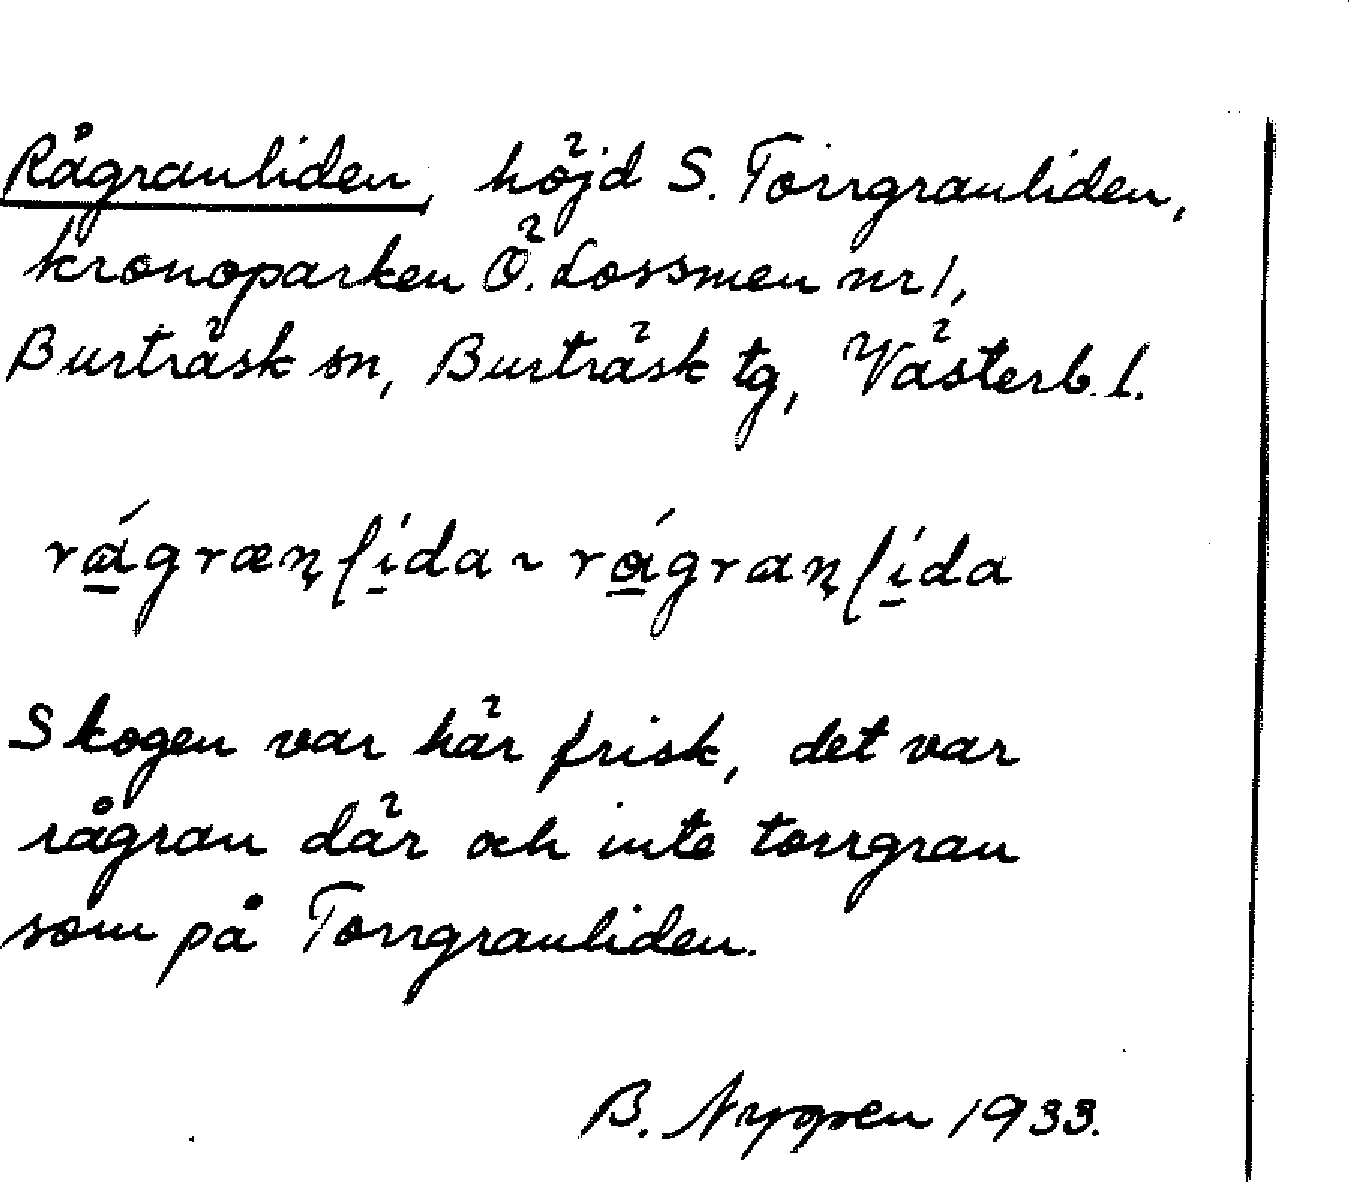 Rågranliden, höjd S. Torrgranliden,
kronoparken Ö. Lossmen nr 1,
Burträsk sn, Burträsk tg, Västerb. l.
rágrænlída ~ rágranlída
Skogen var här frisk, det var
rågran där och inte torrgran
som på Torrgranliden.
B. Nygren 1933.